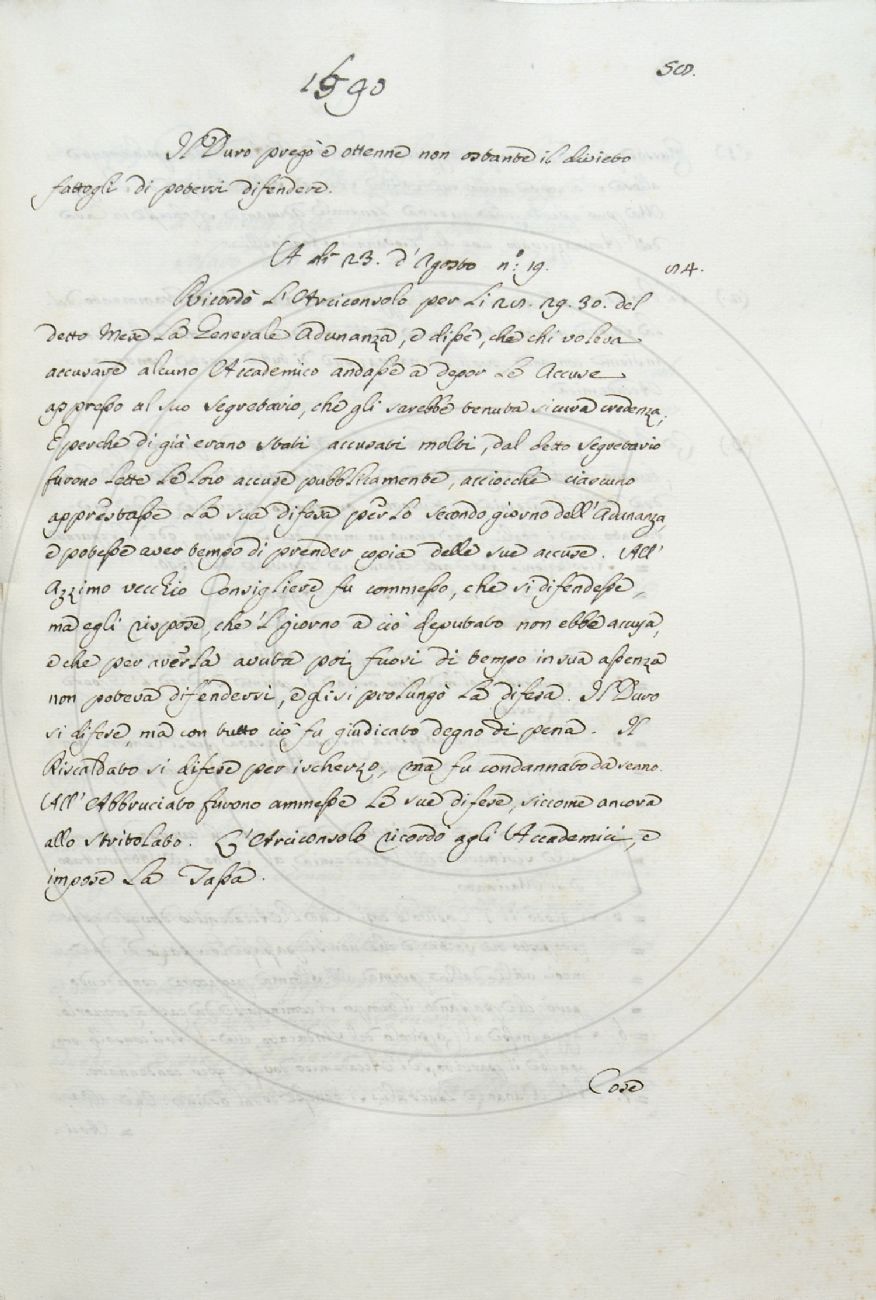 1590
Il Duro pregò e ottenne non ostante il divieto
fattogli di potersi difendere.
A dì 23. d'Agosto n.º 19. 54.
Ricordò l'Arciconsolo per li 25. 29. 30. del
detto Mese la Generale Adunanza, e disse, che chi voleva
accusare alcuno Accademico andasse a depor le Accuse
appresso al suo Segretario, che gli sarebbe tenuta sicura credenza;
E perchè di già erano stati accusati molti, dal detto Segretario
furono lette le loro accuse pubblicamente, acciocchè ciascuno
apprestasse la sua difesa per lo secondo giorno dell'Adunanza,
e potesse aver tempo di prender copia delle sue accuse. All'
Azzimo vecchio Consigliere fu commesso, che si difendesse,
ma egli rispose, che 'l giorno a ciò deputato non ebbe accusa,
e che per averla avuta poi fuori di tempo in sua assenza
non poteva difendersi, e gli si prolungò la difesa. Il Duro
si difese, ma con tutto ciò fu giudicato degno di pena. Il
Riscaldato si difese per ischerzo, ma fu condannato da senno.
All'Abbruciato furono ammesse le sue difese, siccome ancora
allo Stritolato. L'Arciconsolo ricordò agli Accademici, e
impose la Tassa.
Cose